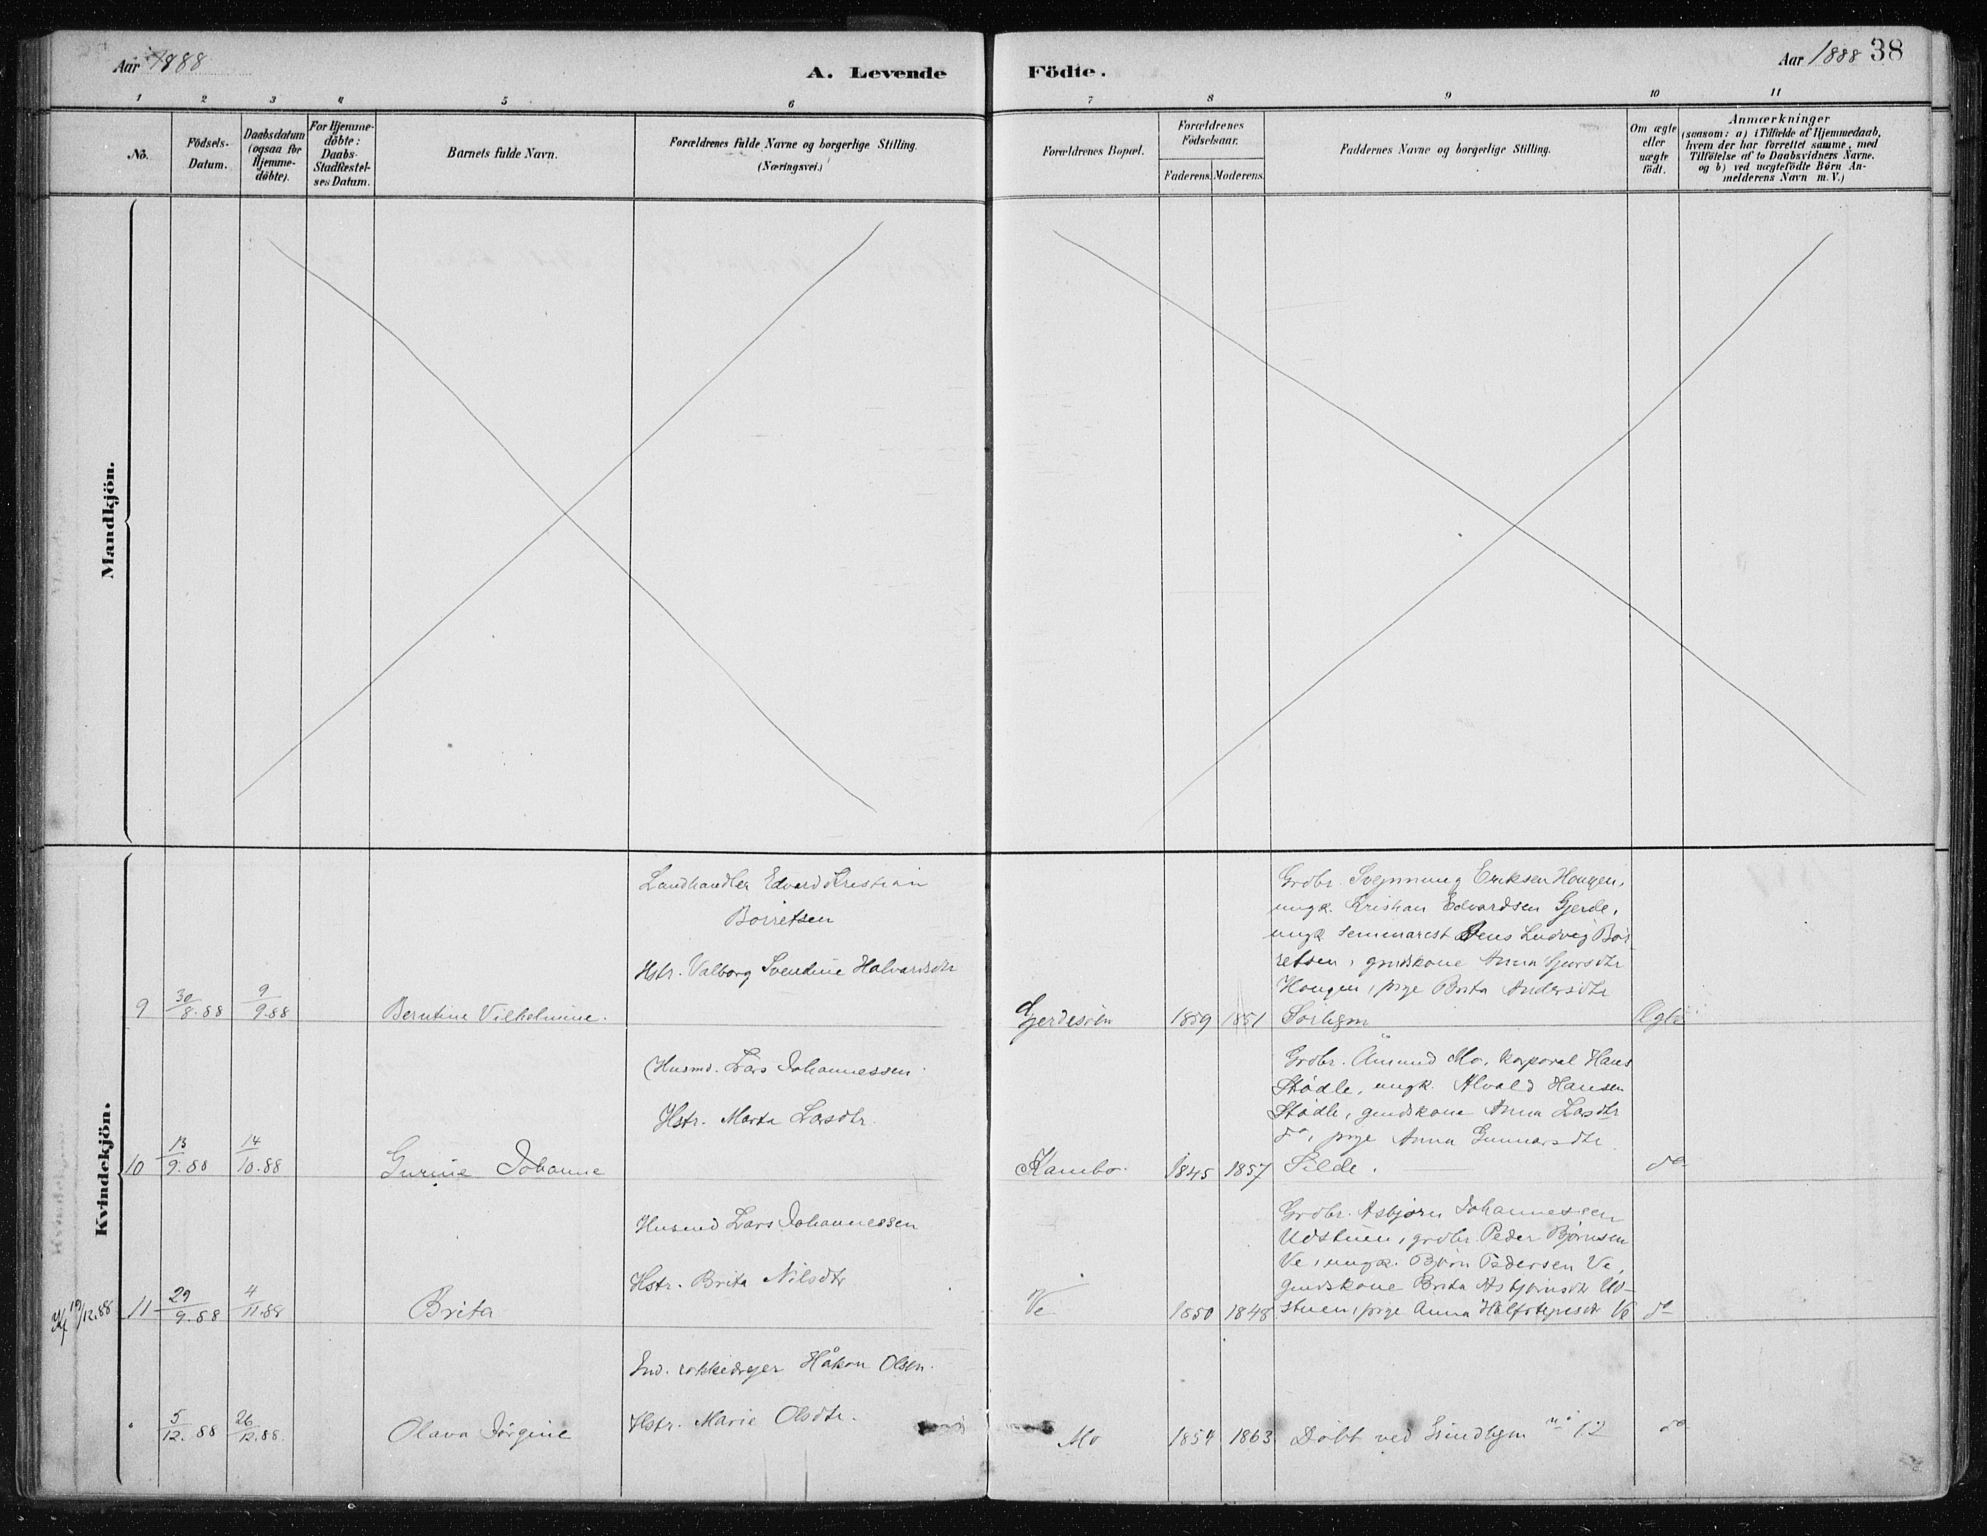 Aar 1888
A. Levende
Födte.
Aar 1888
38
1 2 3 4 5 6 7 8 9 10 11
No.
Födsels-
Datum.
Daabsdatum
(ogsaa for
Hjemme-
döbte).
For Hjemme-
döbte:
Daabs-
Stadfæstel-
ses Datum.
Barnets fulde Navn.
Forældrenes fulde Navne og borgerlige Stilling.
(Næringsvei.)
Forældrenes Bopæl.
Forældrenes
Födselsaar.
Faderens. Moderens.
Faddernes Navne og borgerlige Stilling.
Om ægte
eller
uægte
födt.
Anmærkninger
(saasom: a) i Tilfælde af Hjemmedaab,
hvem der har forrettet samme, med
Tilföielse af to Daabsvidners Navne.
og b) ved uægtefödte Börn An-
melderens Navn m. V.)
Mandkjön.
Kvindekjön.
Landhandler Edvard Kristian
Borretsen
Hstr. Valborg Svendine Halvardsdtr
9 30/8.88 9/9.88 Berntine Vilhelmine.
Gjerdesvien 1859 1851
Grdbr. Svejnung Eriksen Hougen,
ungk. Kristian Edvardsen Gjerde,
ungk seminarist Jens Ludvig Bor
retsen, grdskone Anna
Hougen, pige Brita Andersdtr
Sörhgm
Ægte
Husmd. Lars Johannessen.
Hstr. Marta Larsdtr.
10 13/9.88 14/10.88 Gurine Johanne
Kambo. 1845 1857
Grdbr. Åmund Mo, korporal Hans
Stødle, ungk. Alvald Hansen
Stødle, grdskone Anna Larsdtr
do, pige Anna Gunnarsdtr
Silde.
do
Husmd Lars Johannessen
Hstr. Brita Nilsdtr
19/12.88 11 29/9.88 4/11.88 Brita
Ve 1850 1848
Grdbr. Asbjørn Johannessen
Udstuen, grdbr. Peder Bjørnsen
Ve, ungk. Bjørn Pedersen Ve,
grdskone Brita Asbjørnsdtr Ud-
stuen, pige Anna Ve
do
Ind. rokkedrejer Håkon Olsen.
Hstr. Marie Olsdtr.
5/12.88 26/12.88. Olava Jørgine
Mo 1854 1863 Döbt ved Grindhgm no 12 do